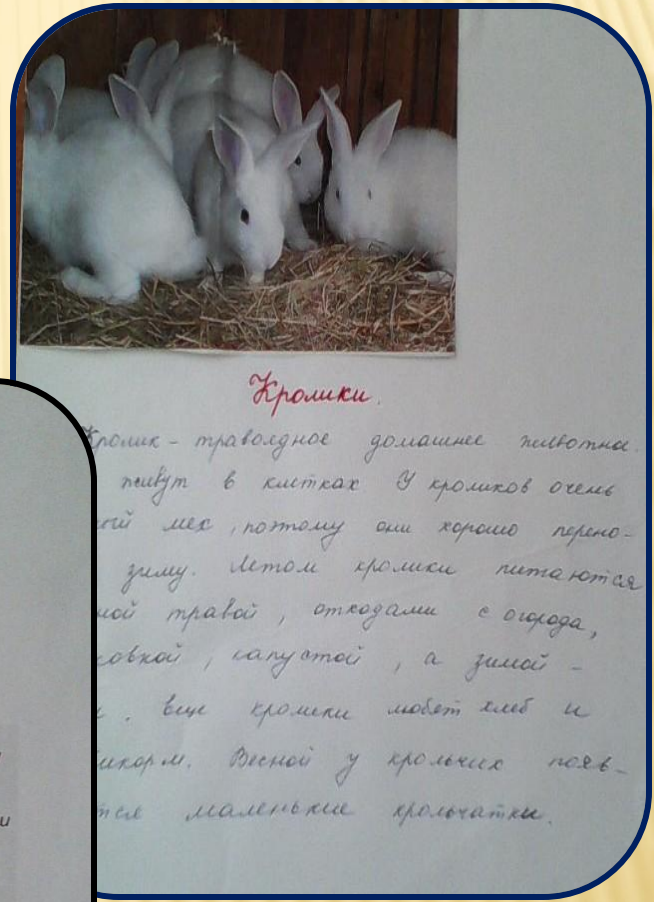 Кролики.
Кролик - травоядное домашнее животное.
живут в клетках У кроликов очень
мех, поэтому они хорошо перено-
зиму. Летом кролики питаются
ной травой, отходами с огорода,
ковкой, капустой, а зимой -
. Еще кролики любят хлеб и
икорм. Весной у крольчих появ-
тся маленькие крольчатки.
и